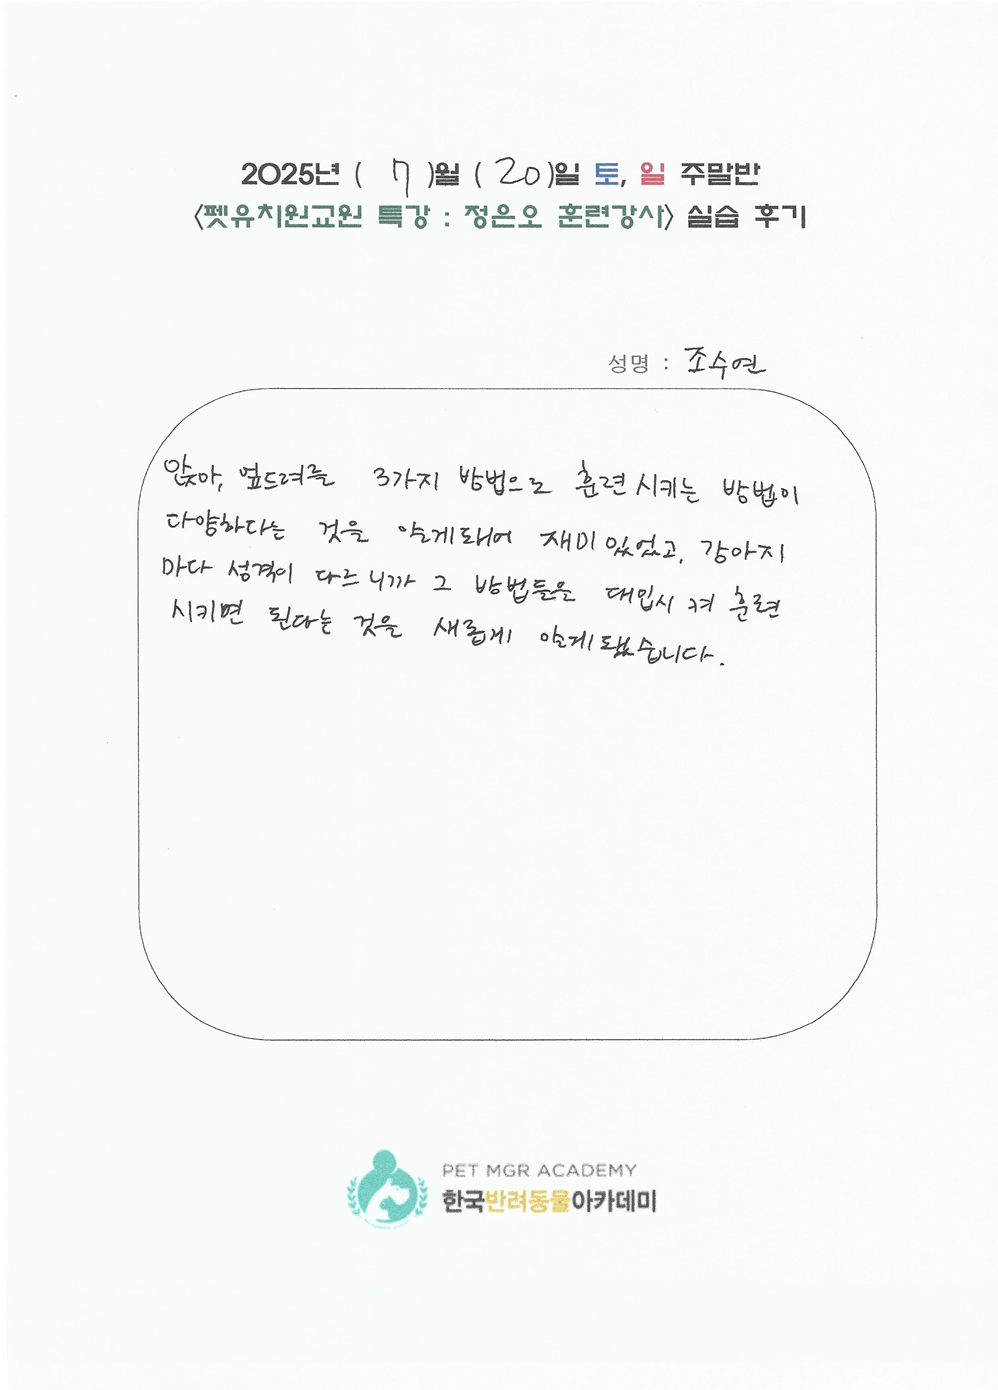 2025년 ( 7 )월 ( 20 )일 토, 일 주말반
<펫유치원교원 특강 : 정은오 훈련강사> 실습 후기
성명 : 조수연
앉아, 엎드려를 3가지 방법으로 훈련시키는 방법이
다양하다는 것을 알게되어 재미있었고, 강아지
마다 성격이 다르니까 그 방법들을 대입시켜 훈련
시키면 된다는 것을 새롭게 알게됐습니다.
PET MGR ACADEMY
한국반려동물아카데미